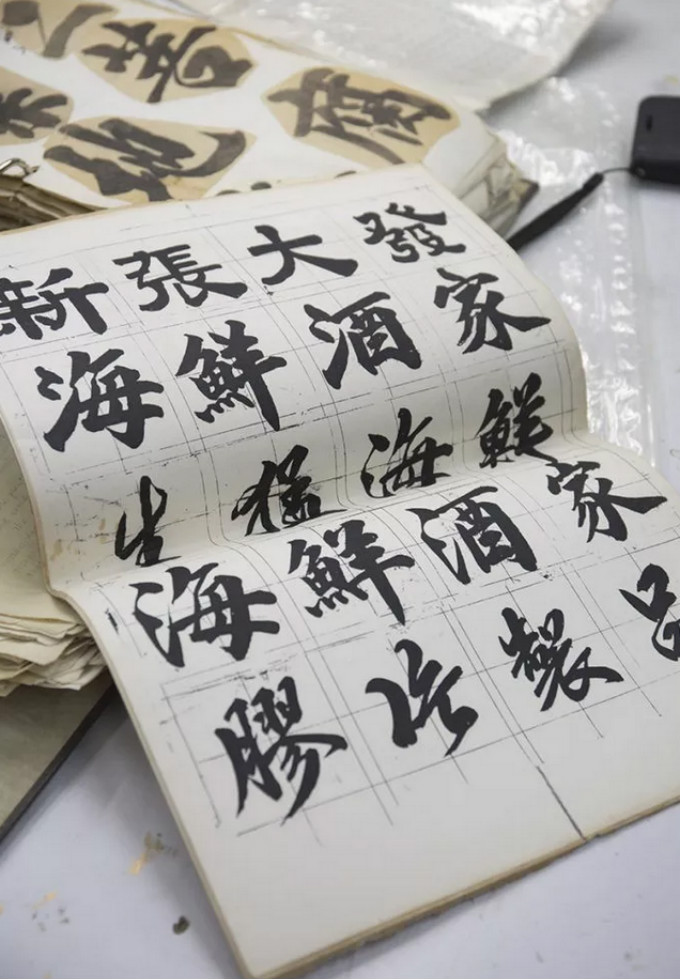 新張大發
海鮮酒家
生猛海鮮
海鮮酒家
膠片製品